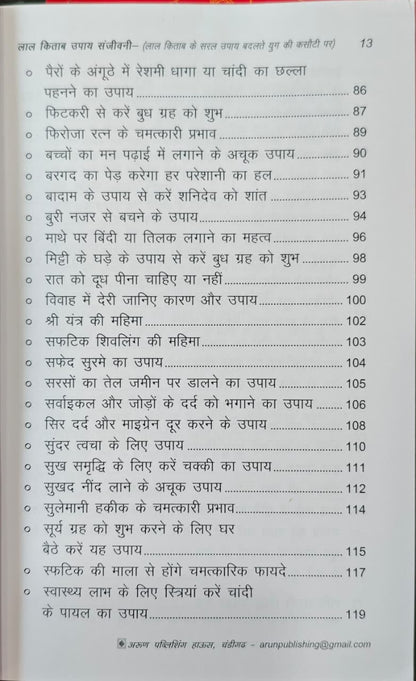 लाल किताब उपाय संजीवनी– (लाल किताब के सरल उपाय बदलते युग की कसौटी पर) 13
० पैरों के अंगूठे में रेशमी धागा या चांदी का छल्ला
पहनने का उपाय 86
० फिटकरी से करें बुध ग्रह को शुभ 87
० फिरोजा रत्न के चमत्कारी प्रभाव 89
० बच्चों का मन पढ़ाई में लगाने के अचूक उपाय 90
० बरगद का पेड़ करेगा हर परेशानी का हल 91
० बादाम के उपाय से करें शनिदेव को शांत 93
० बुरी नजर से बचने के उपाय 94
० माथे पर बिंदी या तिलक लगाने का महत्व 96
० मिट्टी के घड़े के उपाय से करें बुध ग्रह को शुभ 98
० रात को दूध पीना चाहिए या नहीं 99
० विवाह में देरी जानिए कारण और उपाय 100
० श्री यंत्र की महिमा 102
० सफटिक शिवलिंग की महिमा 103
० सफेद सुरमे का उपाय 104
० सरसों का तेल जमीन पर डालने का उपाय 105
० सर्वाइकल और जोड़ों के दर्द को भगाने का उपाय 106
० सिर दर्द और माइग्रेन दूर करने के उपाय 108
० सुंदर त्वचा के लिए उपाय 110
० सुख समृद्धि के लिए करें चक्की का उपाय 111
० सुखद नींद लाने के अचूक उपाय 112
० सुलेमानी हकीक के चमत्कारी प्रभाव 114
० सूर्य ग्रह को शुभ करने के लिए घर
बैठे करें यह उपाय 115
० स्फटिक की माला से होंगे चमत्कारिक फायदे 117
० स्वास्थ्य लाभ के लिए स्त्रियां करें चांदी
के पायल का उपाय 119
अरूण पब्लिशिंग हाऊस, चंडीगढ़ – arunpublishing@gmail.com